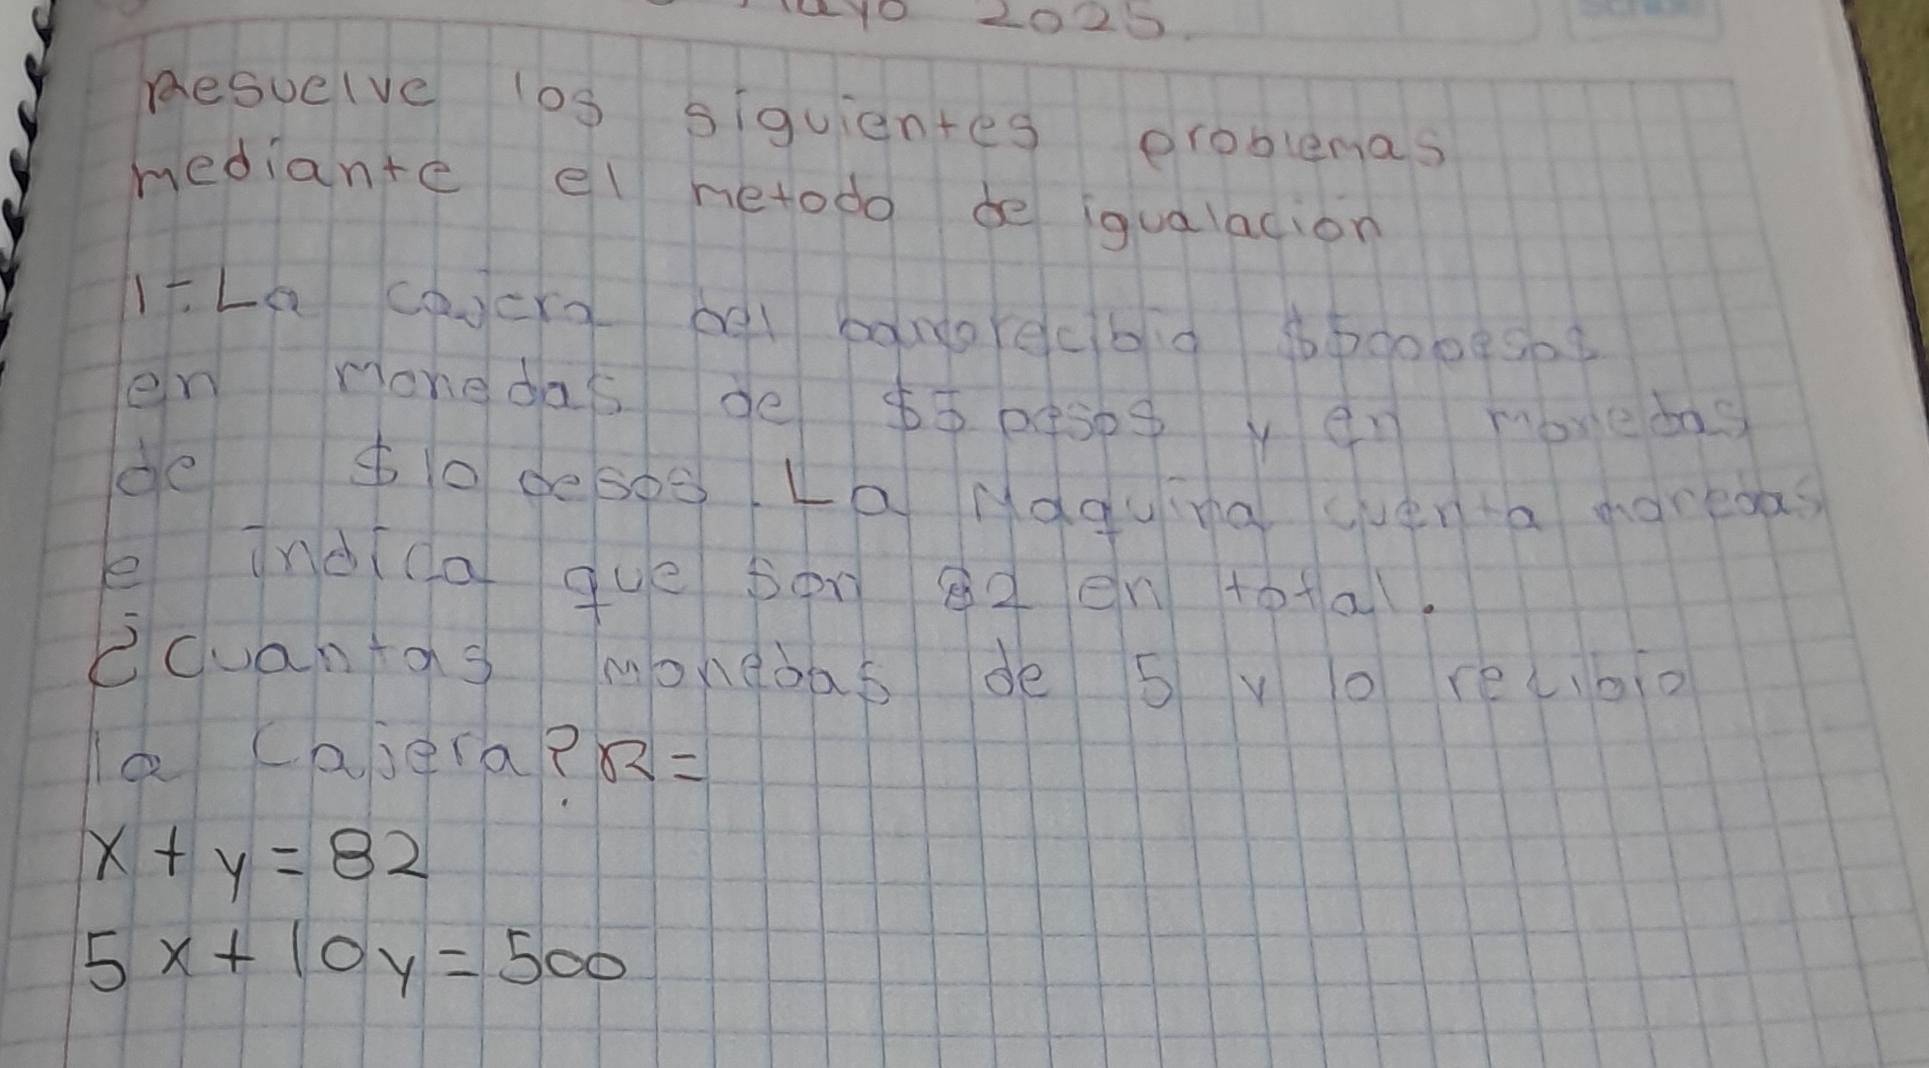 Mayo 2025.
Resuelve los siguientes problemas
mediante el metodo de igualacion
1-. La cajera del banco recibio $500 pesos
en monedas de $5 pesos y en monedas
de $10 pesos. La Maquina cuenta monedas
e indica que son 82 en total.
¿Cuantas monedas de 5 y 10 recibio
la cajera? R=
x + y = 82
5x + 10y = 500